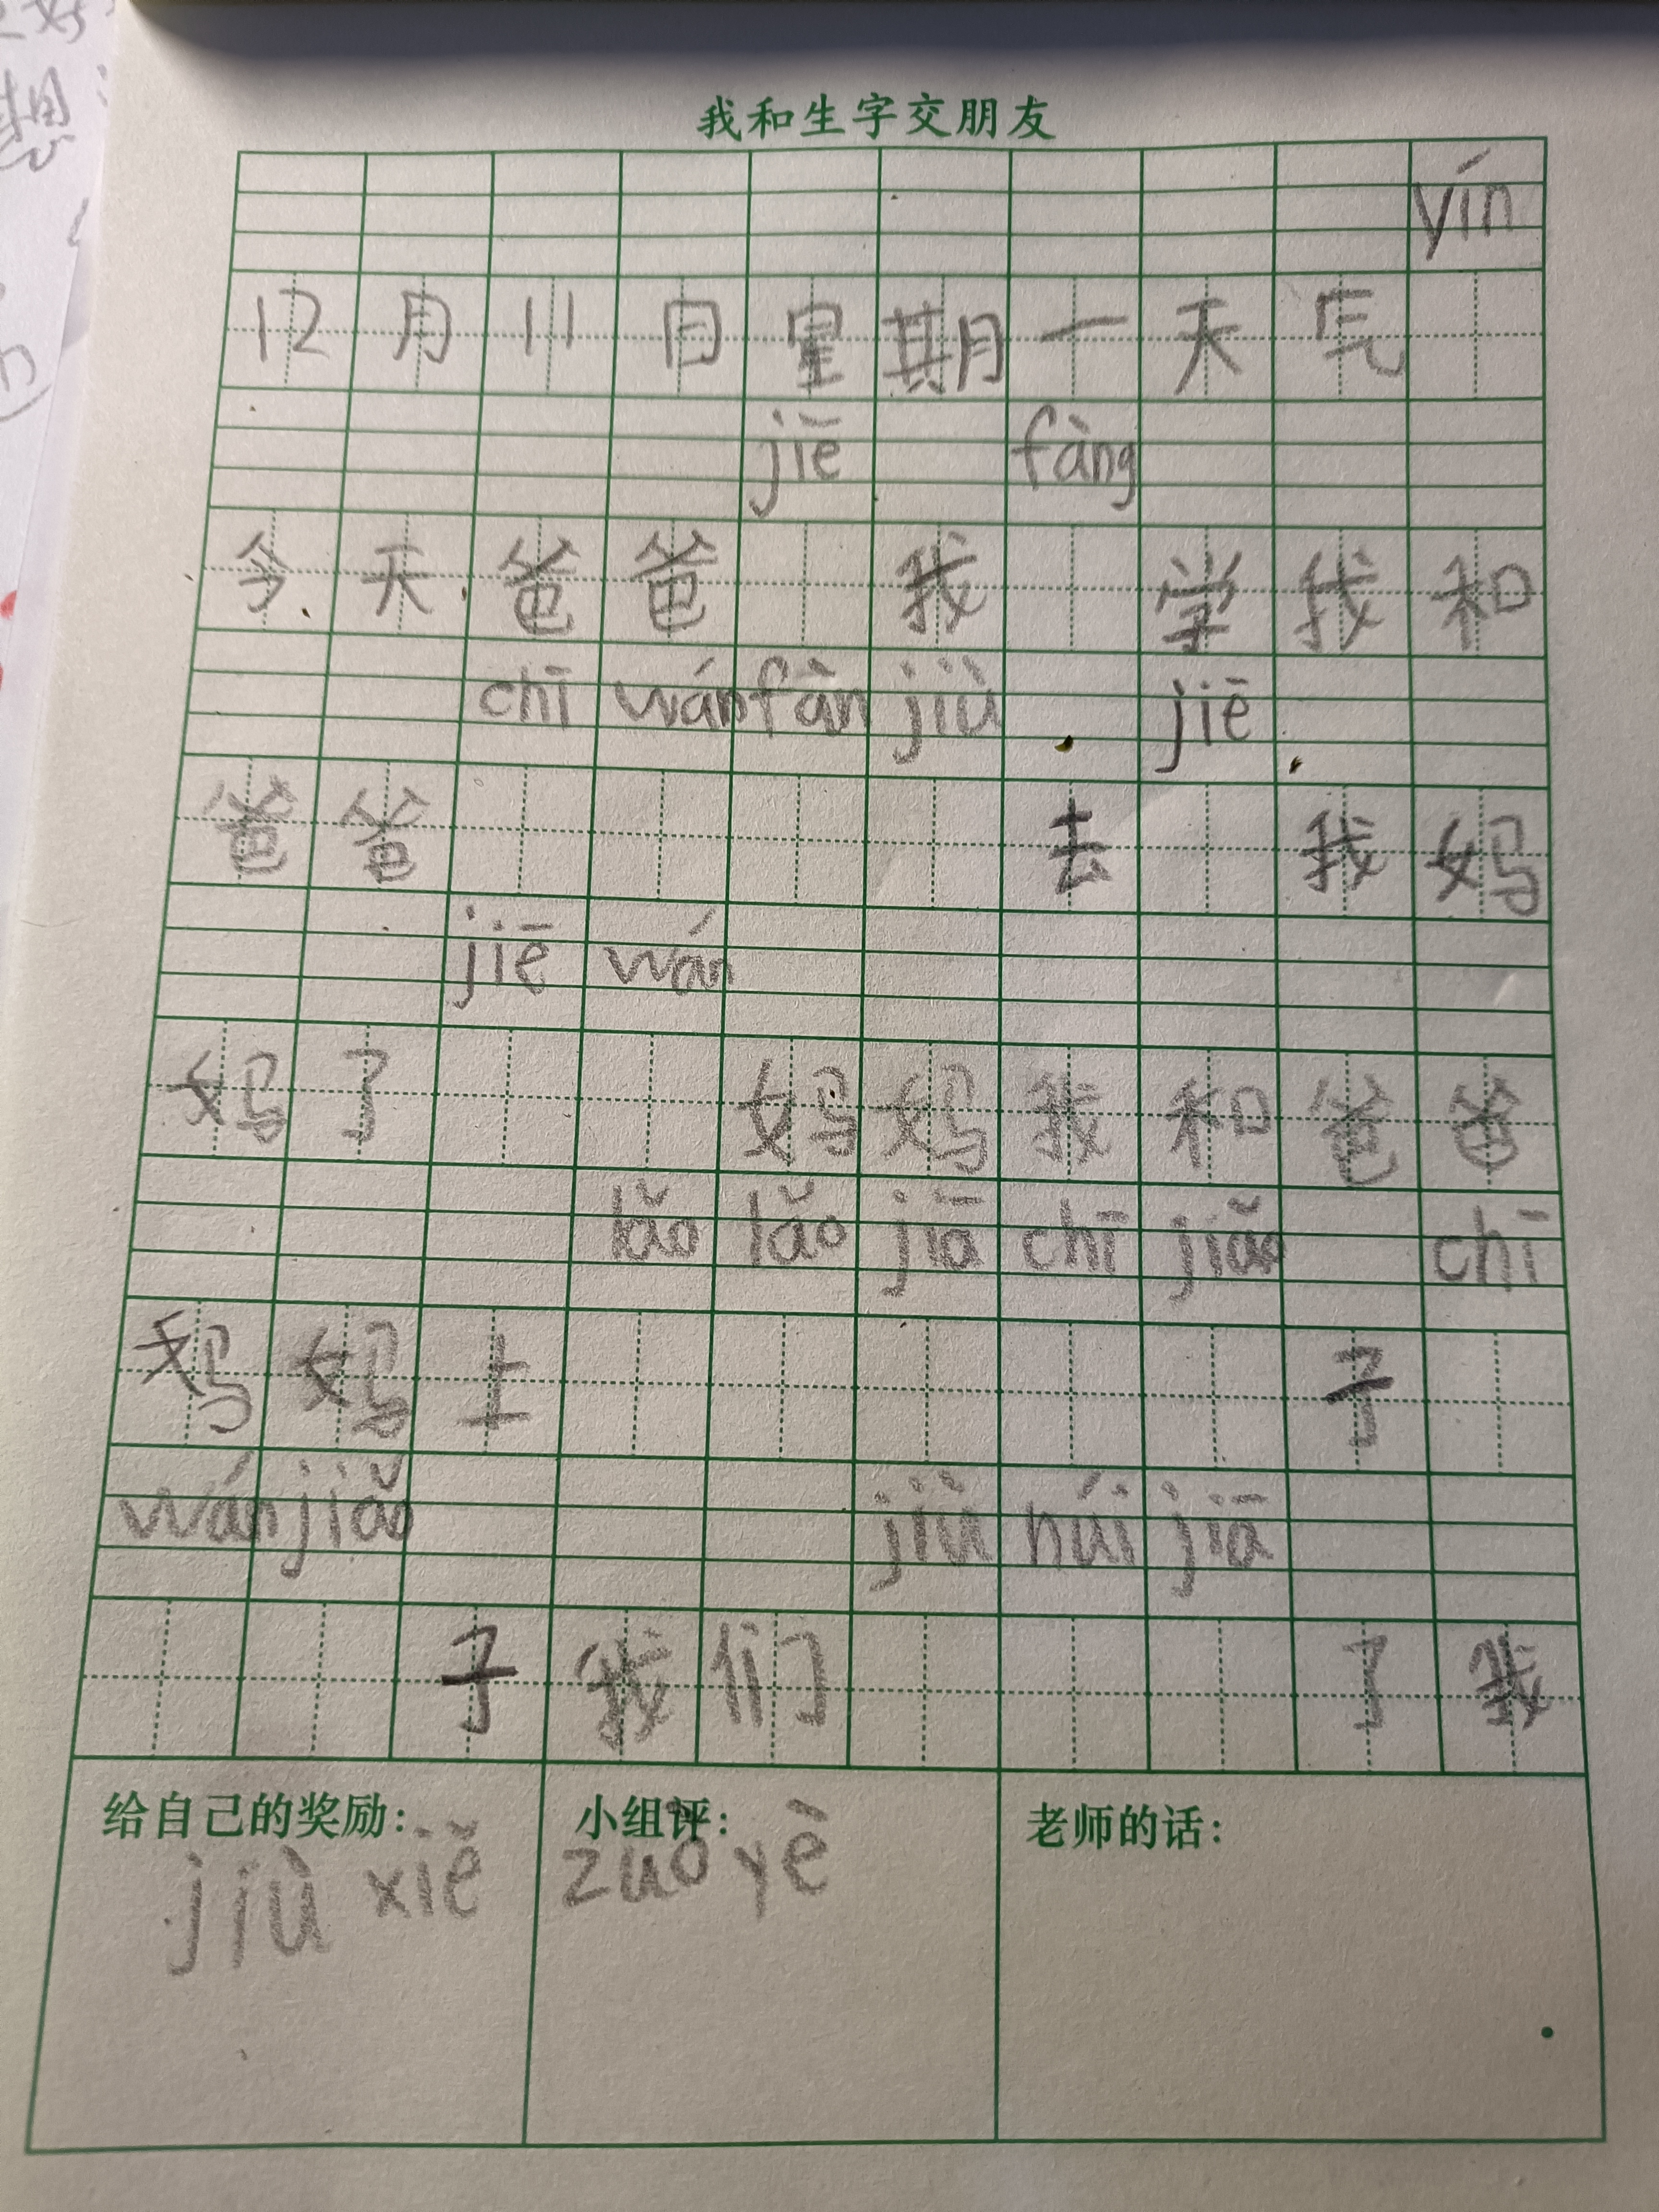 我和生字交朋友
yín
12月11日星期一天气
jiē fàng
今天爸爸 我 学我和
chī wán fàn jiù jiē
爸爸 去 我妈
jiē wán
妈了 妈妈我和爸爸
lǎo lǎo jiā chī jiǎo chī
妈妈上 子
wán jiǎo jiù húi jiā
子我们 了我
给自己的奖励: 小组评: 老师的话:
jiù xiě zuò yè